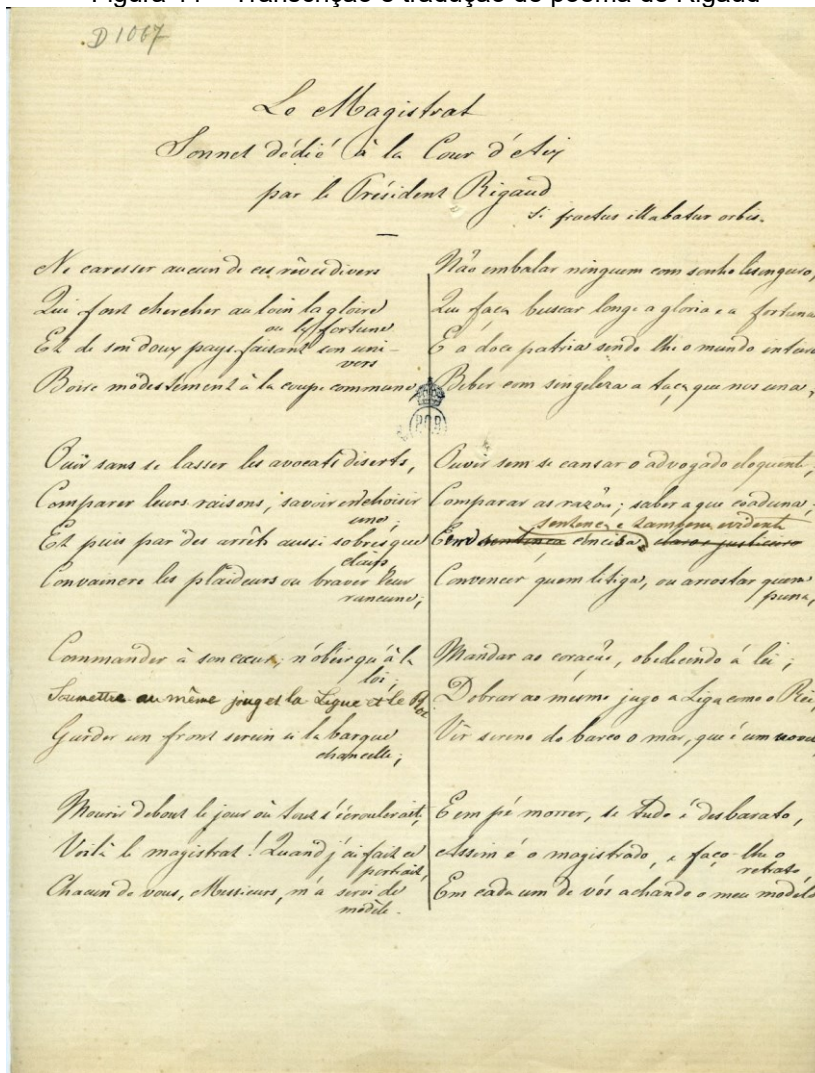 Figura 44 – Transcrição e tradução do poema de Rigaud
D 1067
Le Magistrat
Sonnet dédié à la Cour d'Aix
par le Président Rigaud
Si fractus illabatur orbis.
Ne caresser aucun de ces rêves divers
Qui font chercher au loin la gloire
ou la fortune
Et de son doux pays faisant son uni-
vers
Boire modestement à la coupe commune
Ouïr sans se lasser les avocats diserts,
Comparer leurs raisons, savoir en choisir
une;
Et puis par des arrêts aussi sobres que
clairs
Convaincre les plaideurs ou braver leur
rancune;
Commander à son cœur; n'obéir qu'à la
loi;
Soumettre au même joug et la Ligue et le Roi
Garder un front serein si la barque
chancelle;
Mourir debout le jour où tout s'écroulerait,
Voilà le magistrat! Quand j'ai fait ce
portrait,
Chacun de vous, Messieurs, m'a servi de
modèle.
Não embalar ninguem com sonho lisongeiro,
Que faça buscar longe a gloria e a fortuna
E a doce patria sendo lhe o mundo inteiro
Beber com singeleza a taça que nos una,
Ouvir sem se cansar o advogado eloquente,
Comparar as razões; saber a que coaduna;
sentença e tambem evidente
E em sentença concisa
Convencer quem litiga, ou arrostar quem
puna,
Mandar ao coração, obedecendo á lei;
Dobrar ao mesmo jugo a Liga como o Rei,
Vêr sereno do barco o mar, que é um
E em pé morrer, se tudo é desbarato,
Assim é o magistrado, e faço-lhe o
retrato
Em cada um de vós achando o meu modelo